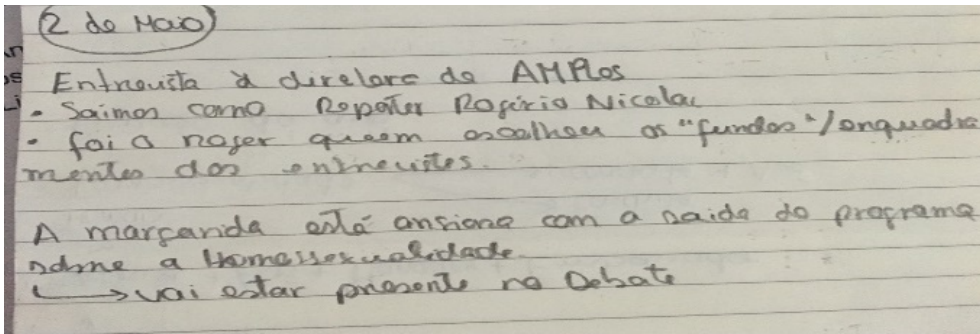 2 de Maio
Entrevista à diretora da AMPLOS
• Saimos como Repóter Rogério Nicolau
• foi o roger quem escolheu os "fundos"/enquadra
mentos das entrevistas.
A margarida está ansiosa com a saida do programa
sobre a Homossexualidade.
↳ vai estar presente no Debate